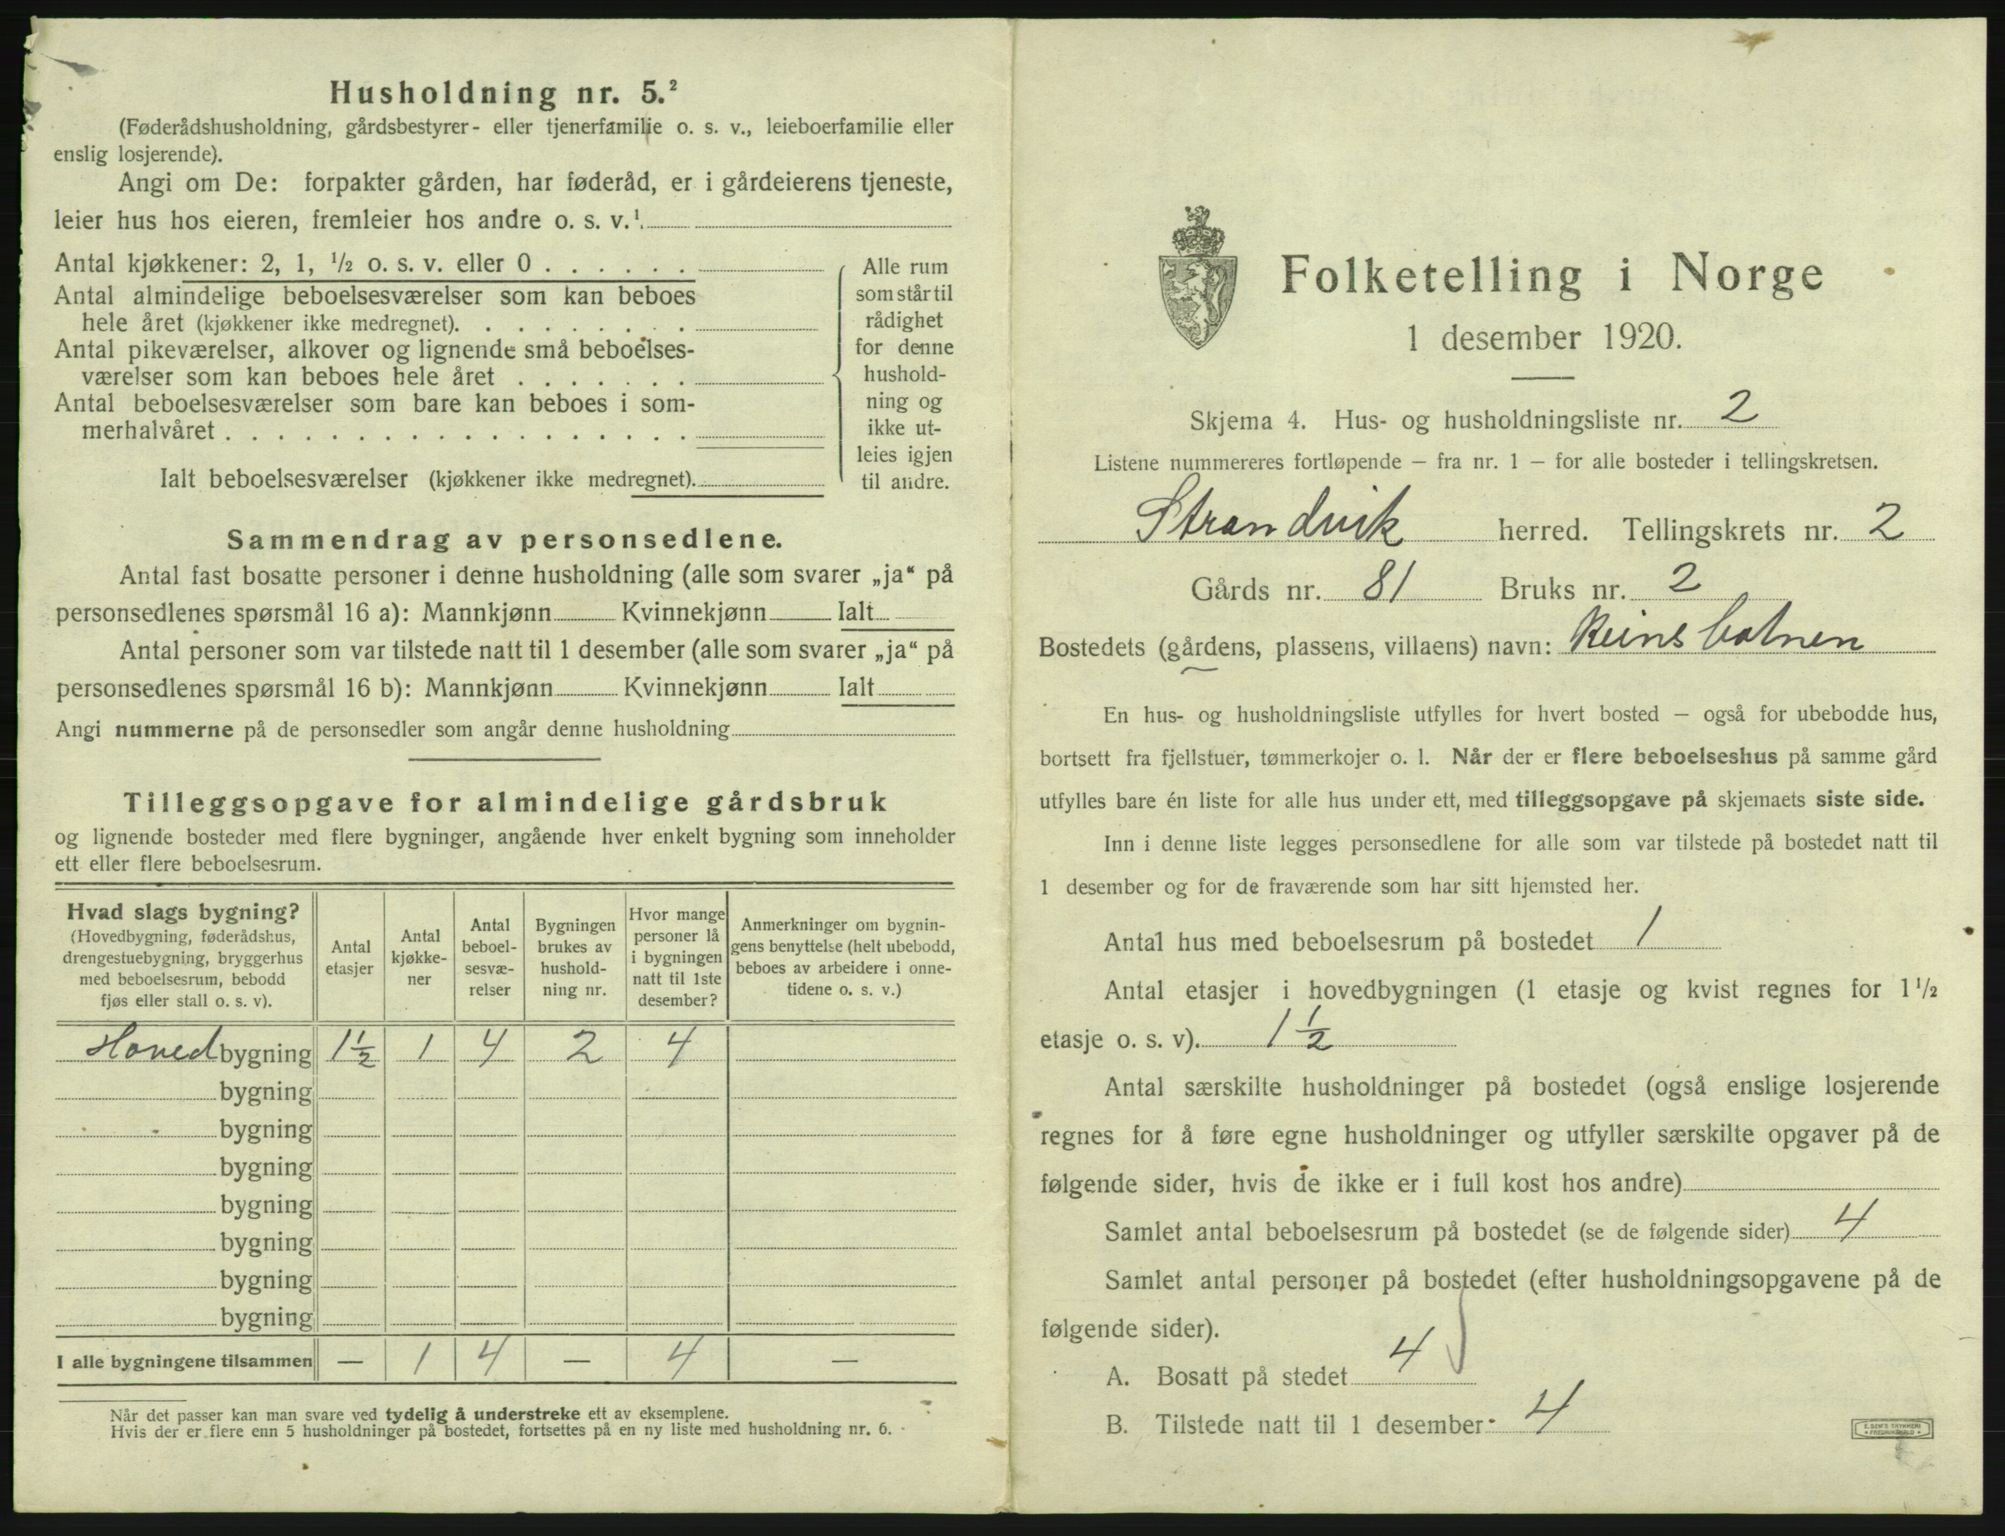 Husholdning nr. 5.²
(Føderådshusholdning, gårdsbestyrer- eller tjenerfamilie o. s. v., leieboerfamilie eller
enslig losjerende).
Angi om De: forpakter gården, har føderåd, er i gårdeierens tjeneste,
leier hus hos eieren, fremleier hos andre o. s. v.¹
Antal kjøkkener: 2, 1, ½ o. s. v. eller 0 . . . . . .
Antal almindelige beboelsesværelser som kan beboes
hele året (kjøkkener ikke medregnet). . . . . . . . .
Antal pikeværelser, alkover og lignende små beboelses-
værelser som kan beboes hele året . . . . . . .
Antal beboelsesværelser som bare kan beboes i som-
merhalvåret . . . . . . . . . . . . . . . . . . .
Alle rum
som står til
rådighet
for denne
hushold-
ning og
ikke ut-
leies igjen
til andre.
Ialt beboelsesværelser (kjøkkener ikke medregnet).
Sammendrag av personsedlene.
Antal fast bosatte personer i denne husholdning (alle som svarer „ja“ på
personsedlenes spørsmål 16 a): Mannkjønn Kvinnekjønn Ialt
Antal personer som var tilstede natt til 1 desember (alle som svarer „ja“ på
personsedlenes spørsmål 16 b): Mannkjønn Kvinnekjønn Ialt
Angi nummerne på de personsedler som angår denne husholdning
Tilleggsopgave for almindelige gårdsbruk
og lignende bosteder med flere bygninger, angående hver enkelt bygning som inneholder
ett eller flere beboelsesrum.
Hvad slags bygning?
(Hovedbygning, føderådshus,
drengestuebygning, bryggerhus
med beboelsesrum, bebodd
fjøs eller stall o. s. v).
Antal
etasjer
Antal
kjøkke-
ner
Antal
beboel-
sesvæ-
relser
Bygningen
brukes av
hushold-
ning nr.
Hvor mange
personer lå
i bygningen
natt til 1ste
desember?
Anmerkninger om bygnin-
gens benyttelse (helt ubebodd,
beboes av arbeidere i onne-
tidene o. s. v.)
Hovedbygning 1½ 1 4 2 4
bygning
bygning
bygning
bygning
bygning
bygning
bygning
I alle bygningene tilsammen — 1 4 — 4 —
Når det passer kan man svare ved tydelig å understreke ett av eksemplene.
Hvis der er flere enn 5 husholdninger på bostedet, fortsettes på en ny liste med husholdning nr. 6.
Folketelling i Norge
1 desember 1920.
Skjema 4. Hus- og husholdningsliste nr. 2
Listene nummereres fortløpende — fra nr. 1 — for alle bosteder i tellingskretsen.
Strandvik herred. Tellingskrets nr. 2
Gårds nr. 81 Bruks nr. 2
Bostedets (gårdens, plassens, villaens) navn: Reinsbotnen
En hus- og husholdningsliste utfylles for hvert bosted — også for ubebodde hus,
bortsett fra fjellstuer, tømmerkojer o. l. Når der er flere beboelseshus på samme gård
utfylles bare én liste for alle hus under ett, med tilleggsopgave på skjemaets siste side.
Inn i denne liste legges personsedlene for alle som var tilstede på bostedet natt til
1 desember og for de fraværende som har sitt hjemsted her.
Antal hus med beboelsesrum på bostedet 1
Antal etasjer i hovedbygningen (1 etasje og kvist regnes for 1½
etasje o. s. v). 1½
Antal særskilte husholdninger på bostedet (også enslige losjerende
regnes for å føre egne husholdninger og utfyller særskilte opgaver på de
følgende sider, hvis de ikke er i full kost hos andre)
Samlet antal beboelsesrum på bostedet (se de følgende sider) 4
Samlet antal personer på bostedet (efter husholdningsopgavene på de
følgende sider).
A. Bosatt på stedet 4
B. Tilstede natt til 1 desember 4